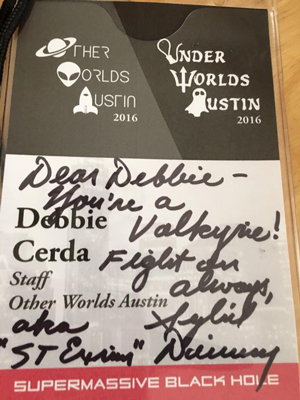 OTHER
WORLDS
AUSTIN
2016
UNDER
WORLDS
AUSTIN
2016
Dear Debbie –
You're a
Valkyrie!
Fight on
always,
Sybil
Danning
aka
"ST Exmin"
Debbie
Cerda
Staff
Other Worlds Austin
SUPERMASSIVE BLACK HOLE